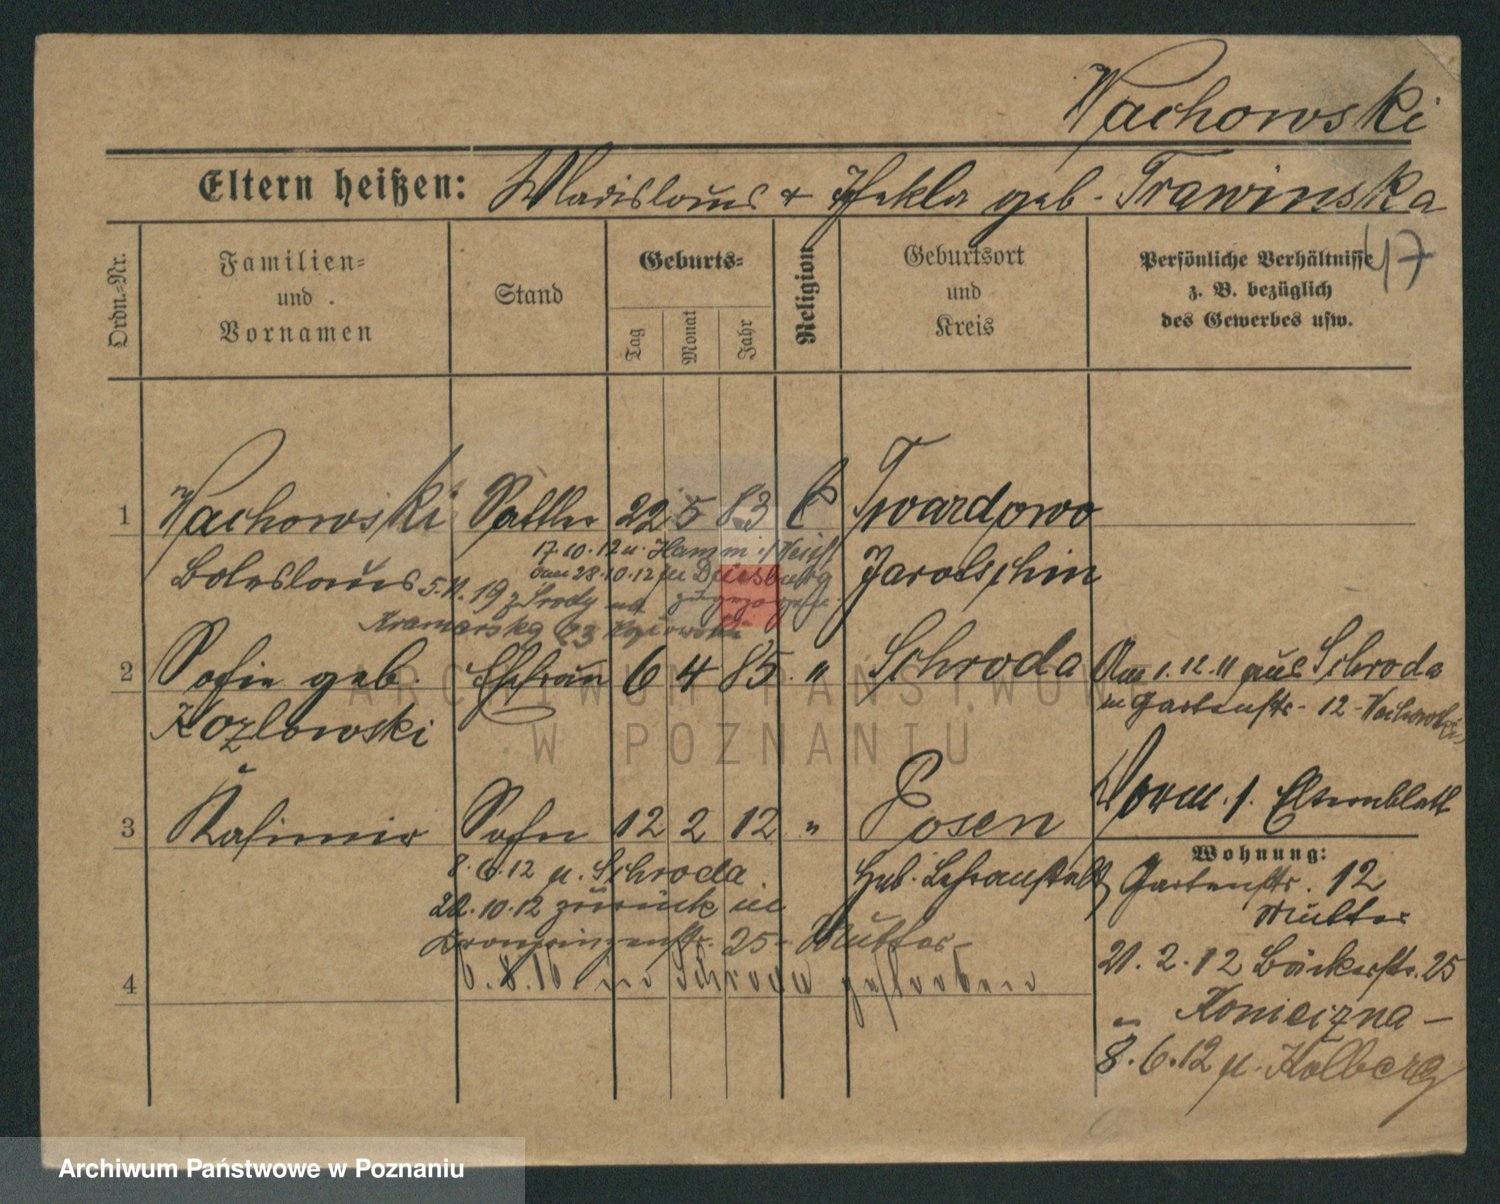 Wachowski
Eltern heißen: Wladislaus + Thekla geb. Trawinska
47
Ordn.-Nr.
Familien-
und
Vornamen
Stand
Geburts-
Tag
Monat
Jahr
Religion
Geburtsort
und
Kreis
Persönliche Verhältnisse
z. B. bezüglich
des Gewerbes usw.
1 Wachowski Sattler 22 5 83 C Twardowo
17.10.12 n. Hamm
Boleslaus Jarotschin
28.10.12 in Duisburg
5.11.19 z Srody na
zugezogen
Kramarska 23
2 Sofie geb. Ehefrau 6 4 85 " Schroda Am 1.12.11 aus Schroda
in Gartenstr. 12 - Wachowski
Kozlowski
Elternblatt
3 Kasimir Sohn 12 2 12 " Posen
Wohnung:
8.6.12 n. Schroda
Heb. Lehranstalt
Gartenstr. 12
20.10.12 zurück in
Mutter
Kronprinzenstr. 25 - Mutter -
21.2.12 Bäckerstr. 25
6.8.16 in Schroda gestorben
4
" Konieczna -
8.6.12 n. Kolberg
ARCHIWUM PAŃSTWOWE
W POZNANIU
Archiwum Państwowe w Poznaniu